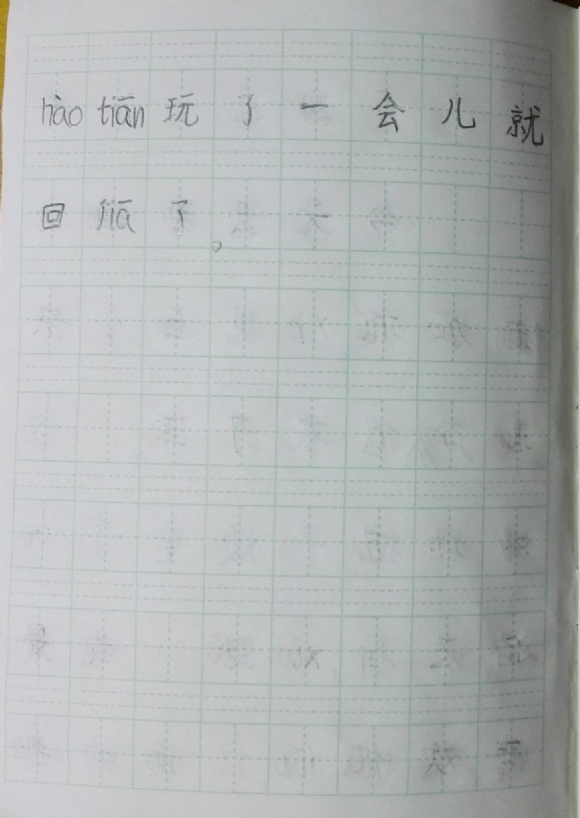 hào tiān 玩了一会儿就
回 jiā 了。